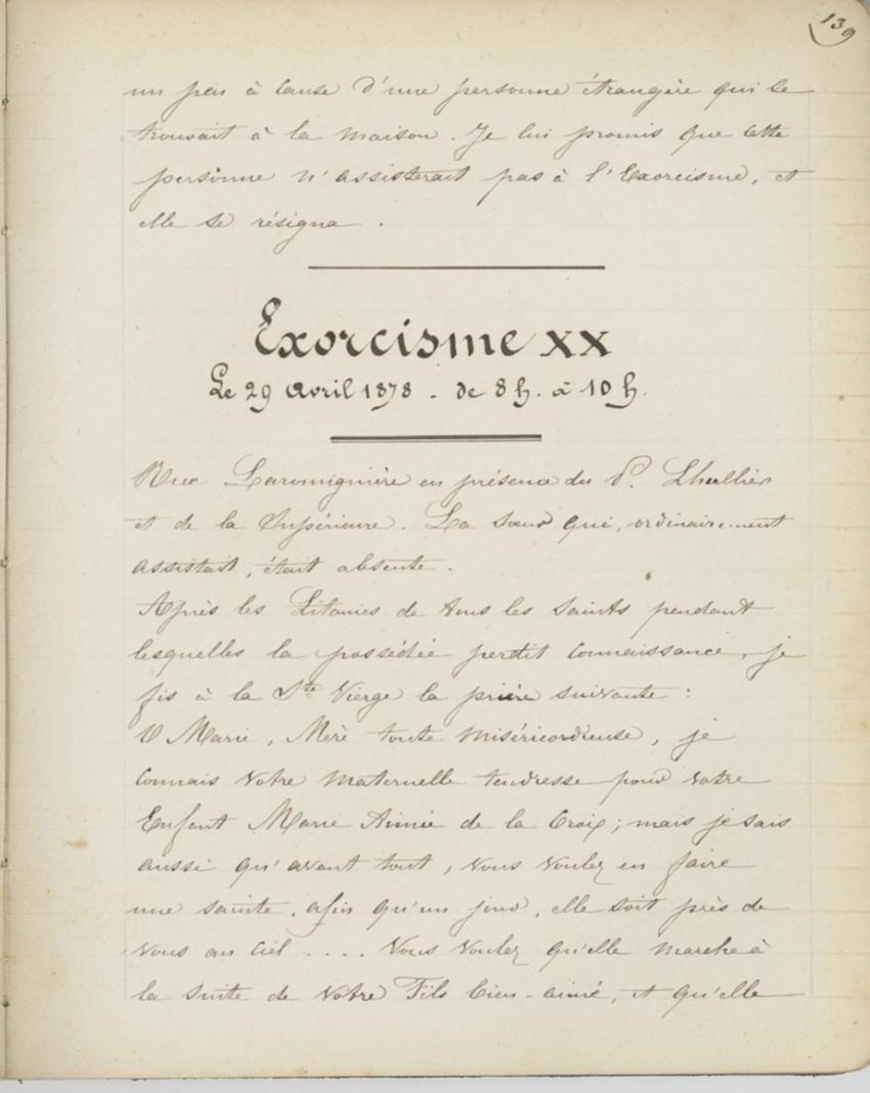 139
un peu à cause d'une personne étrangère qui se
trouvait à la maison. Je lui promis que cette
personne n'assisterait pas à l'Exorcisme, et
elle se résigna.
Exorcisme XX
Le 29 Avril 1878 - de 8 h. à 10 h.
Rue Laromiguière en présence du P. Lhullier
et de la Supérieure. La Sœur qui, ordinairement
assistait, était absente.
Après les Litanies de tous les Saints pendant
lesquelles la possédée perdit connaissance, je
fis à la Ste Vierge la prière suivante :
O Marie, Mère toute miséricordieuse, je
connais votre maternelle tendresse pour votre
Enfant Marie Aimée de la Croix ; mais je sais
aussi qu'avant tout, vous voulez en faire
une sainte, afin qu'un jour, elle soit près de
vous au ciel .... Vous voulez qu'elle marche à
la suite de votre Fils bien-aimé, et qu'elle